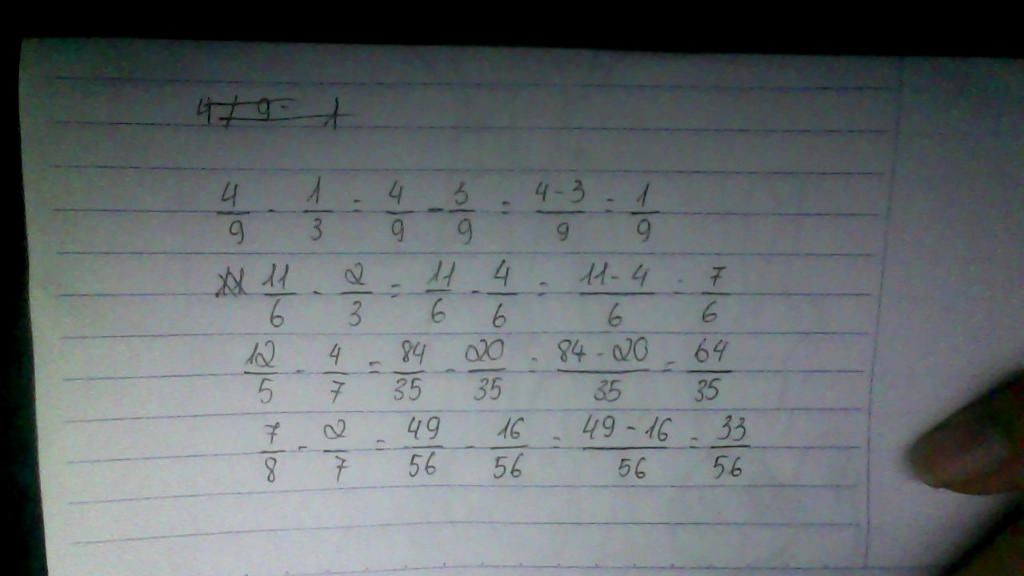 4/9 - 1
4/9 - 1/3 = 4/9 - 3/9 = 4-3/9 = 1/9
11/6 - 2/3 = 11/6 - 4/6 = 11-4/6 = 7/6
12/5 - 4/7 = 84/35 - 20/35 = 84-20/35 = 64/35
7/8 - 2/7 = 49/56 - 16/56 = 49-16/56 = 33/56